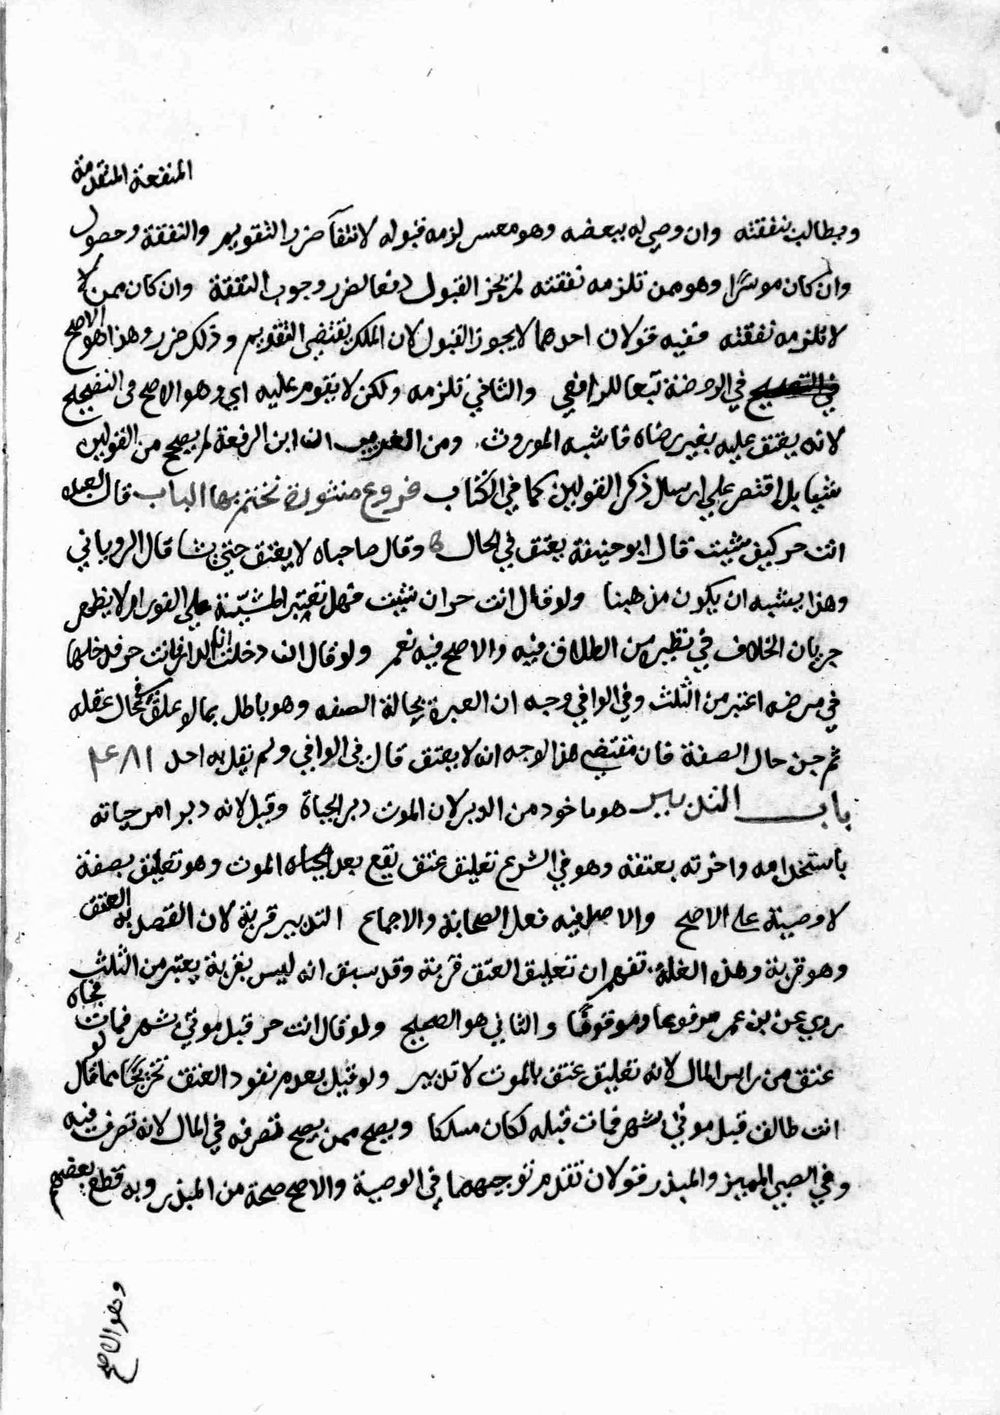 المنفعة المتقدمة
ويطالب بنفقته وان وصي له ببعضه وهو معسر لزمه قبوله لانتفآ ضرر التقويم والنفقة وحصول
وان كان موسرا وهو ممن تلزمه نفقته لم يجز القبول دفعا لضرر وجوب النفقة وان كان ممن لا
لا تلزمه نفقته ففيه قولان احدهما لا يجوز القبول لان الملك يقتضي التقويم وذلك ضرر وهذا هو الاصح
في الروضة تبعا للرافعي والثاني تلزمه ولكن لا يقوم عليه اي وهو الاصح في التصحيح
لانه يعتق عليه بغير رضاه فاشبه الموروث ومن الغريب ان ابن الرفعة لم يصحح من القولين
شيا بل اقتصر علي ارسال ذكر القولين كما في الكتاب فروع منثورة نختم بها الباب قال لعبده
انت حر كيف شيت قال ابو حنيفة يعتق في الحال وقال صاحباه لا يعتق حتي يشا قال الروياني
وهذا يشبه ان يكون مذهبنا ولو قال انت حر ان شيت فهل تعتبر المشيّة علي الفور ام لا يظهر
جريان الخلاف في نظيره من الطلاق فيه والاصح فيه نعم ولو قال ان دخلت الدار فانت حر فدخلها
في مرضه اعتبر من الثلث وفي الوافي وجه ان العبرة بحالة الصفه وهو باطل بما لو علق في حال عقله
ثم جن حال الصفة فان مقتضي هذا الوجه انه لا يعتق قال في الوافي ولم يقل به احد
باب التدبير هو ماخوذ من الدبر لان الموت دبر الحياة وقيل لانه دبر امر حياته
باستخدامه واخرته بعتقه وهو في الشرع تعليق عتق يقع بعد الحياه الموت وهو تعليق بصفة
لا وصية على الاصح والاصل فيه فعل الصحابة والاجماع التدبير قربة لان القصد به العتق
وهو قربة وهذه العلة تفهم ان تعليق العتق قربة وقد سبق انه ليس بقربة يعتبر من الثلث
روي عن بن عمر مرفوعا وموقوفا والثاني هو الصحيح ولو قال انت حر قبل موتي بشهر فمات فجاه
عتق من راس المال لانه تعليق عتق بالموت لا تدبير ولو قيل بعدم نفوذ العتق تخريجا مما لو قال
انت طالق قبل موتي بشهر فمات قبله لكان مسلكا ويصح ممن يصح تصرفه في المال لانه تصرف فيه
وفي الصبي المميز والمبذر قولان تقدم توجيههما في الوصية والاصح صحة من المبذر وبه قطع بعضهم
وهو الاصح